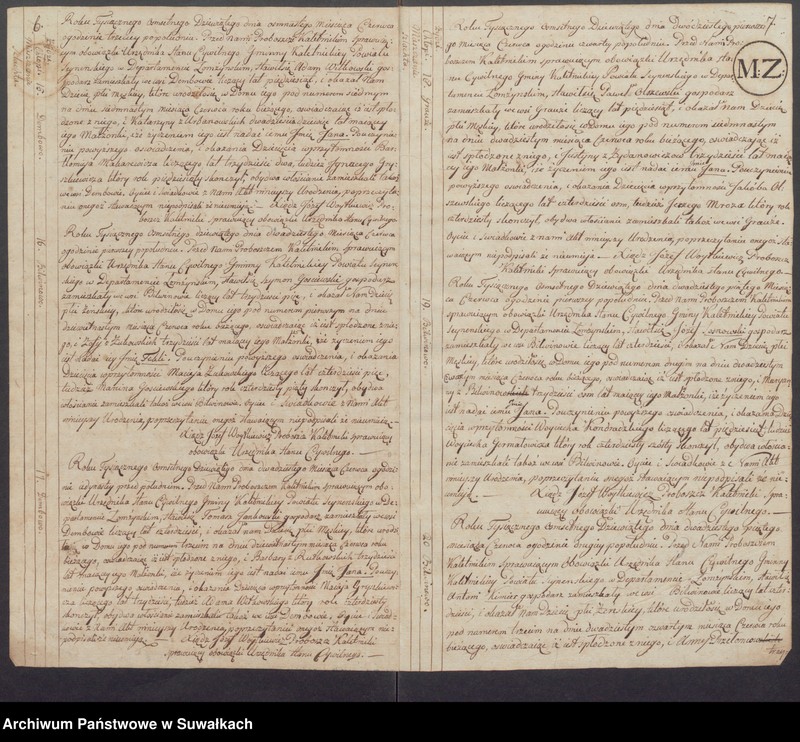 6.
Roku Tysiącznego Osmsetnego Dziewiątego dnia osmnastego Miesiąca Czerwca
ogodzinie trzeciey popołudniu. Przed Nami Proboszczem Kaletnickim Sprawuią-
cym obowiązki Urzędnika Stanu Cywilnego Gminy Kaletnickiey Powiatu
Seynenskiego w Departamencie Łomżyńskim, Stawił się Adam Witkowski gos-
podarz zamieszkały we wsi Dembowie liczący lat pięćdziesiąt, i okazał Nam
Dziecię płci męskiey, które urodziło się w Domu iego pod numerem siodmym
na dniu siedmnastym miesiąca Czerwca roku bieżącego, oswiadczaiąc iż iest spło-
dzone z niego, i Katarzyny z Urbanowskich dwadziescia dziewięć lat maiącey
iego Małżonki, iż życzeniem iego iest nadać iemu Imię Jana. Po uczynie-
niu powyższego oswiadczenia, i okazania Dziecięcia w przytomności Bar-
tłomieja Makarewicza liczącego lat trzydziescie dwa, tudzież Ignacego
który rok pięćdziesiąty skończył, obydwa włościanie zamieszkali także
we wsi Dembowie. Oyciec i Swiadkowie z Nami Akt ninieyszy Urodzenia, po przeczyta-
niu onegoż stawaiącym niepodpisali że nieumieią. — Xiądz Józef Woytkiewicz Pro-
boszcz Kaletnicki, sprawuiący obowiązki Urzędnika Stanu Cywilnego.
Roku Tysiącznego Osmsetnego dziewiątego, dnia dwudziestego Miesiąca Czerwca
ogodzinie pierwszy popołudniu. Przed Nami Proboszczem Kaletnickim Sprawuiącym
obowiązki Urzędnika Stanu Cywilnego Gminy Kaletnickiey Powiatu Seynen-
skiego w Departamencie Łomżyńskim, Stawił się Szymon Gosciewski gospodarz
zamieszkały we wsi Bilwinowie liczący lat trzydziesci pięć, i okazał Nam Dziecię
płci żenskiey, które urodziło się w Domu iego pod numerem pierwszym na dniu
dziewiętnastym miesiąca Czerwca roku bieżącego, oswiadczaiąc iż iest spłodzone z nie-
go, i Zofii z Żukowskich trzydzieści lat maiącey iego Małżonki, iż życzeniem iego
iest nadać iey Imię Tekli. Po uczynieniu powyższego oswiadczenia, i okazania
Dziecięcia w przytomności Macieja Żukowskiego liczącego lat czterdzieści pięć,
tudzież Marcina Gosciewskiego który rok czterdziesty piąty skończył, obydwa
włościanie zamieszkali także we wsi Bilwinowie. Oyciec i Swiadkowie z Nami Akt
ninieyszy Urodzenia, po przeczytaniu onegoż stawaiącym niepodpisali że nieumieią. —
Xiądz Józef Woytkiewicz Proboszcz Kaletnicki sprawuiący
obowiązki Urzędnika Stanu Cywilnego. —
Roku Tysiącznego Osmsetnego Dziewiątego dnia dwudziestego Miesiąca Czerwca ogodzi-
nie iedynasty przed południem. Przed Nami Proboszczem Kaletnickim sprawuiącym obo-
wiązki Urzędnika Stanu Cywilnego Gminy Kaletnickiey Powiatu Seynenskiego w De-
partamencie Łomżyńskim, Stawił się Tomasz Jankowski gospodarz zamieszkały we wsi
Dembowie liczący lat czterdzieści, i okazał nam Dziecię płci Męskiey, które urodzi-
ło się w Domu iego pod numerem trzecim na dniu dziewiętnastym miesiąca Czerwca roku
bieżącego, oswiadczaiąc iż iest spłodzone z niego, i Barbary z Rutkowskich trzydzieści
lat maiącey iego Małżonki, iż życzeniem iego iest nadać iemu Imię Jana. Po uczy-
nieniu powyższego oswiadczenia, i okazania Dziecięcia w przytomności Macieja
liczącego lat trzydziescie, tudzież Adama Witkowskiego który rok
skończył, obydwa włościanie zamieszkali także we wsi Dembowie. Oyciec i Swiad-
kowie z Nami Akt ninieyszy Urodzenia, po przeczytaniu onegoż stawaiącym nie-
podpisali że nieumieią. Xiądz Józef Woytkiewicz Proboszcz Kaletnicki
sprawuiący obowiązki Urzędnika Stanu Cywilnego. —
16. Bilwinowo.
17. Dembowo.
7.
M-Z:
18. Grauże
Roku Tysiącznego Osmsetnego Dziewiątego dnia Dwódziestego pierwsze-
go Miesiąca Czerwca ogodzinie czwarty popołudniu. Przed Nami Pro-
boszczem Kaletnickim sprawuiącym obowiązki Urzędnika Sta-
nu Cywilnego Gminy Kaletnickiey Powiatu Seynenskiego w Depar-
tamencie Łomżyńskim, Stawił się Paweł Olszewski gospodarz
zamieszkały we wsi Grauże liczący lat pięćdziesiąt, i okazał Nam Dziecię
płci Męskiey, które urodziło się w Domu iego pod numerem siedmnastym
na dniu dwudziestym miesiąca Czerwca roku bieżącego, oswiadczaiąc iż
iest spłodzone z niego, i Justyny z Bydanowiczow trzydziesci lat maią-
cey iego Małżonki, iż życzeniem iego iest nadać iemu Imię Jana. Po uczynieniu
powyższego oswiadczenia, i okazania Dziecięcia w przytomności Jakóba Ol-
szewskiego liczącego lat czterdzieści osm, tudzież Jerzego Mroza który rok
czterdziesty skończył, obydwa włościanie zamieszkali także we wsi Grauże.
Oyciec i Swiadkowie z nami Akt ninieyszy Urodzenia, po przeczytaniu onegoż sta-
waiącym niepodpisali że nieumieią. — Xiądz Józef Woytkiewicz Proboszcz
Kaletnicki Sprawuiący obowiązki Urzędnika Stanu Cywilnego. —
19. Bilwinowo.
Roku Tysiącznego Osmsetnego Dziewiątego, dnia dwudziestego piątego Miesią-
ca Czerwca ogodzinie pierwszy popołudniu. Przed Nami Proboszczem Kaletnickim
sprawuiącym obowiązki Urzędnika Stanu Cywilnego Gminy Kaletnickiey Powiatu
Seynenskiego w Departamencie Łomżyńskim, Stawił się Józef gospodarz
zamieszkały we wsi Bilwinowie liczący lat czterdzieści, i okazał Nam Dziecię płci
Męskiey, które urodziło się w Domu iego pod numerem drugim na dniu dwudziestym
czwartym miesiąca Czerwca roku bieżącego, oswiadczaiąc iż iest spłodzone z niego, i Maryanny
z Bilwinow trzydziesci osm lat maiącey iego Małżonki, iż życzeniem iego
iest nadać iemu Imię Jana. Po uczynieniu powyższego oswiadczenia, i okazania Dzie-
cięcia w przytomności Woyciecha Kondrackiego liczącego lat pięćdziesiąt, tudzież
Woyciecha Jarmołowicza który rok czterdziesty szósty skończył, obydwa włościa-
nie zamieszkali także we wsi Bilwinowie. Oyciec i Swiadkowie z Nami Akt
ninieyszy Urodzenia, po przeczytaniu onegoż stawaiącym niepodpisali że nie-
umieią. — Xiądz Józef Woytkiewicz Proboszcz Kaletnicki Spra-
wuiący obowiązki Urzędnika Stanu Cywilnego. —
20. Bilwinowo.
Roku Tysiącznego Osmsetnego Dziewiątego dnia dwudziestego piątego
miesiąca Czerwca ogodzinie drugiey popołudniu. Przed Nami Proboszczem
Kaletnickim Sprawuiącym Obowiązki Urzędnika Stanu Cywilnego Gminy
Kaletnickiey Powiatu Seynenskiego w Departamencie Łomżyńskim, Stawił się
Antoni gospodarz zamieszkały we wsi Bilwinowie liczący lat czter-
dziesci, i okazał Nam Dziecię płci żenskiey, które urodziło się w Domu iego
pod numerem trzecim na dniu dwudziestym czwartym miesiąca Czerwca roku
bieżącego, oswiadczaiąc iż iest spłodzone z niego, i Anny
Archiwum Państwowe w Suwałkach